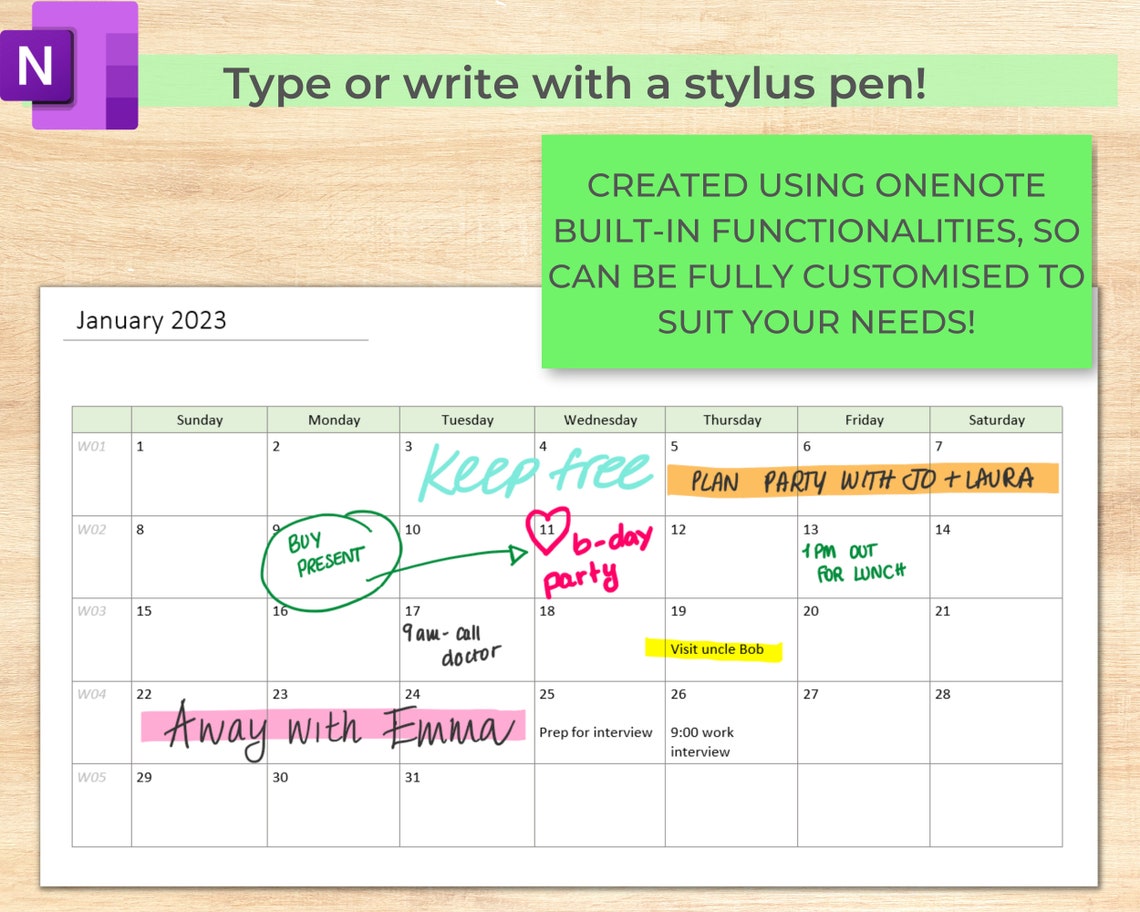 N
Type or write with a stylus pen!
CREATED USING ONENOTE
BUILT-IN FUNCTIONALITIES, SO
CAN BE FULLY CUSTOMISED TO
SUIT YOUR NEEDS!
January 2023
Sunday Monday Tuesday Wednesday Thursday Friday Saturday
W01 1 2 3 4 5 6 7
Keep free
PLAN PARTY WITH JO + LAURA
W02 8 9 10 11 12 13 14
BUY
PRESENT
b-day
party
1 PM OUT
FOR LUNCH
W03 15 16 17 18 19 20 21
9am - call
doctor
Visit uncle Bob
W04 22 23 24 25 26 27 28
Away with Emma
Prep for interview
9:00 work
interview
W05 29 30 31